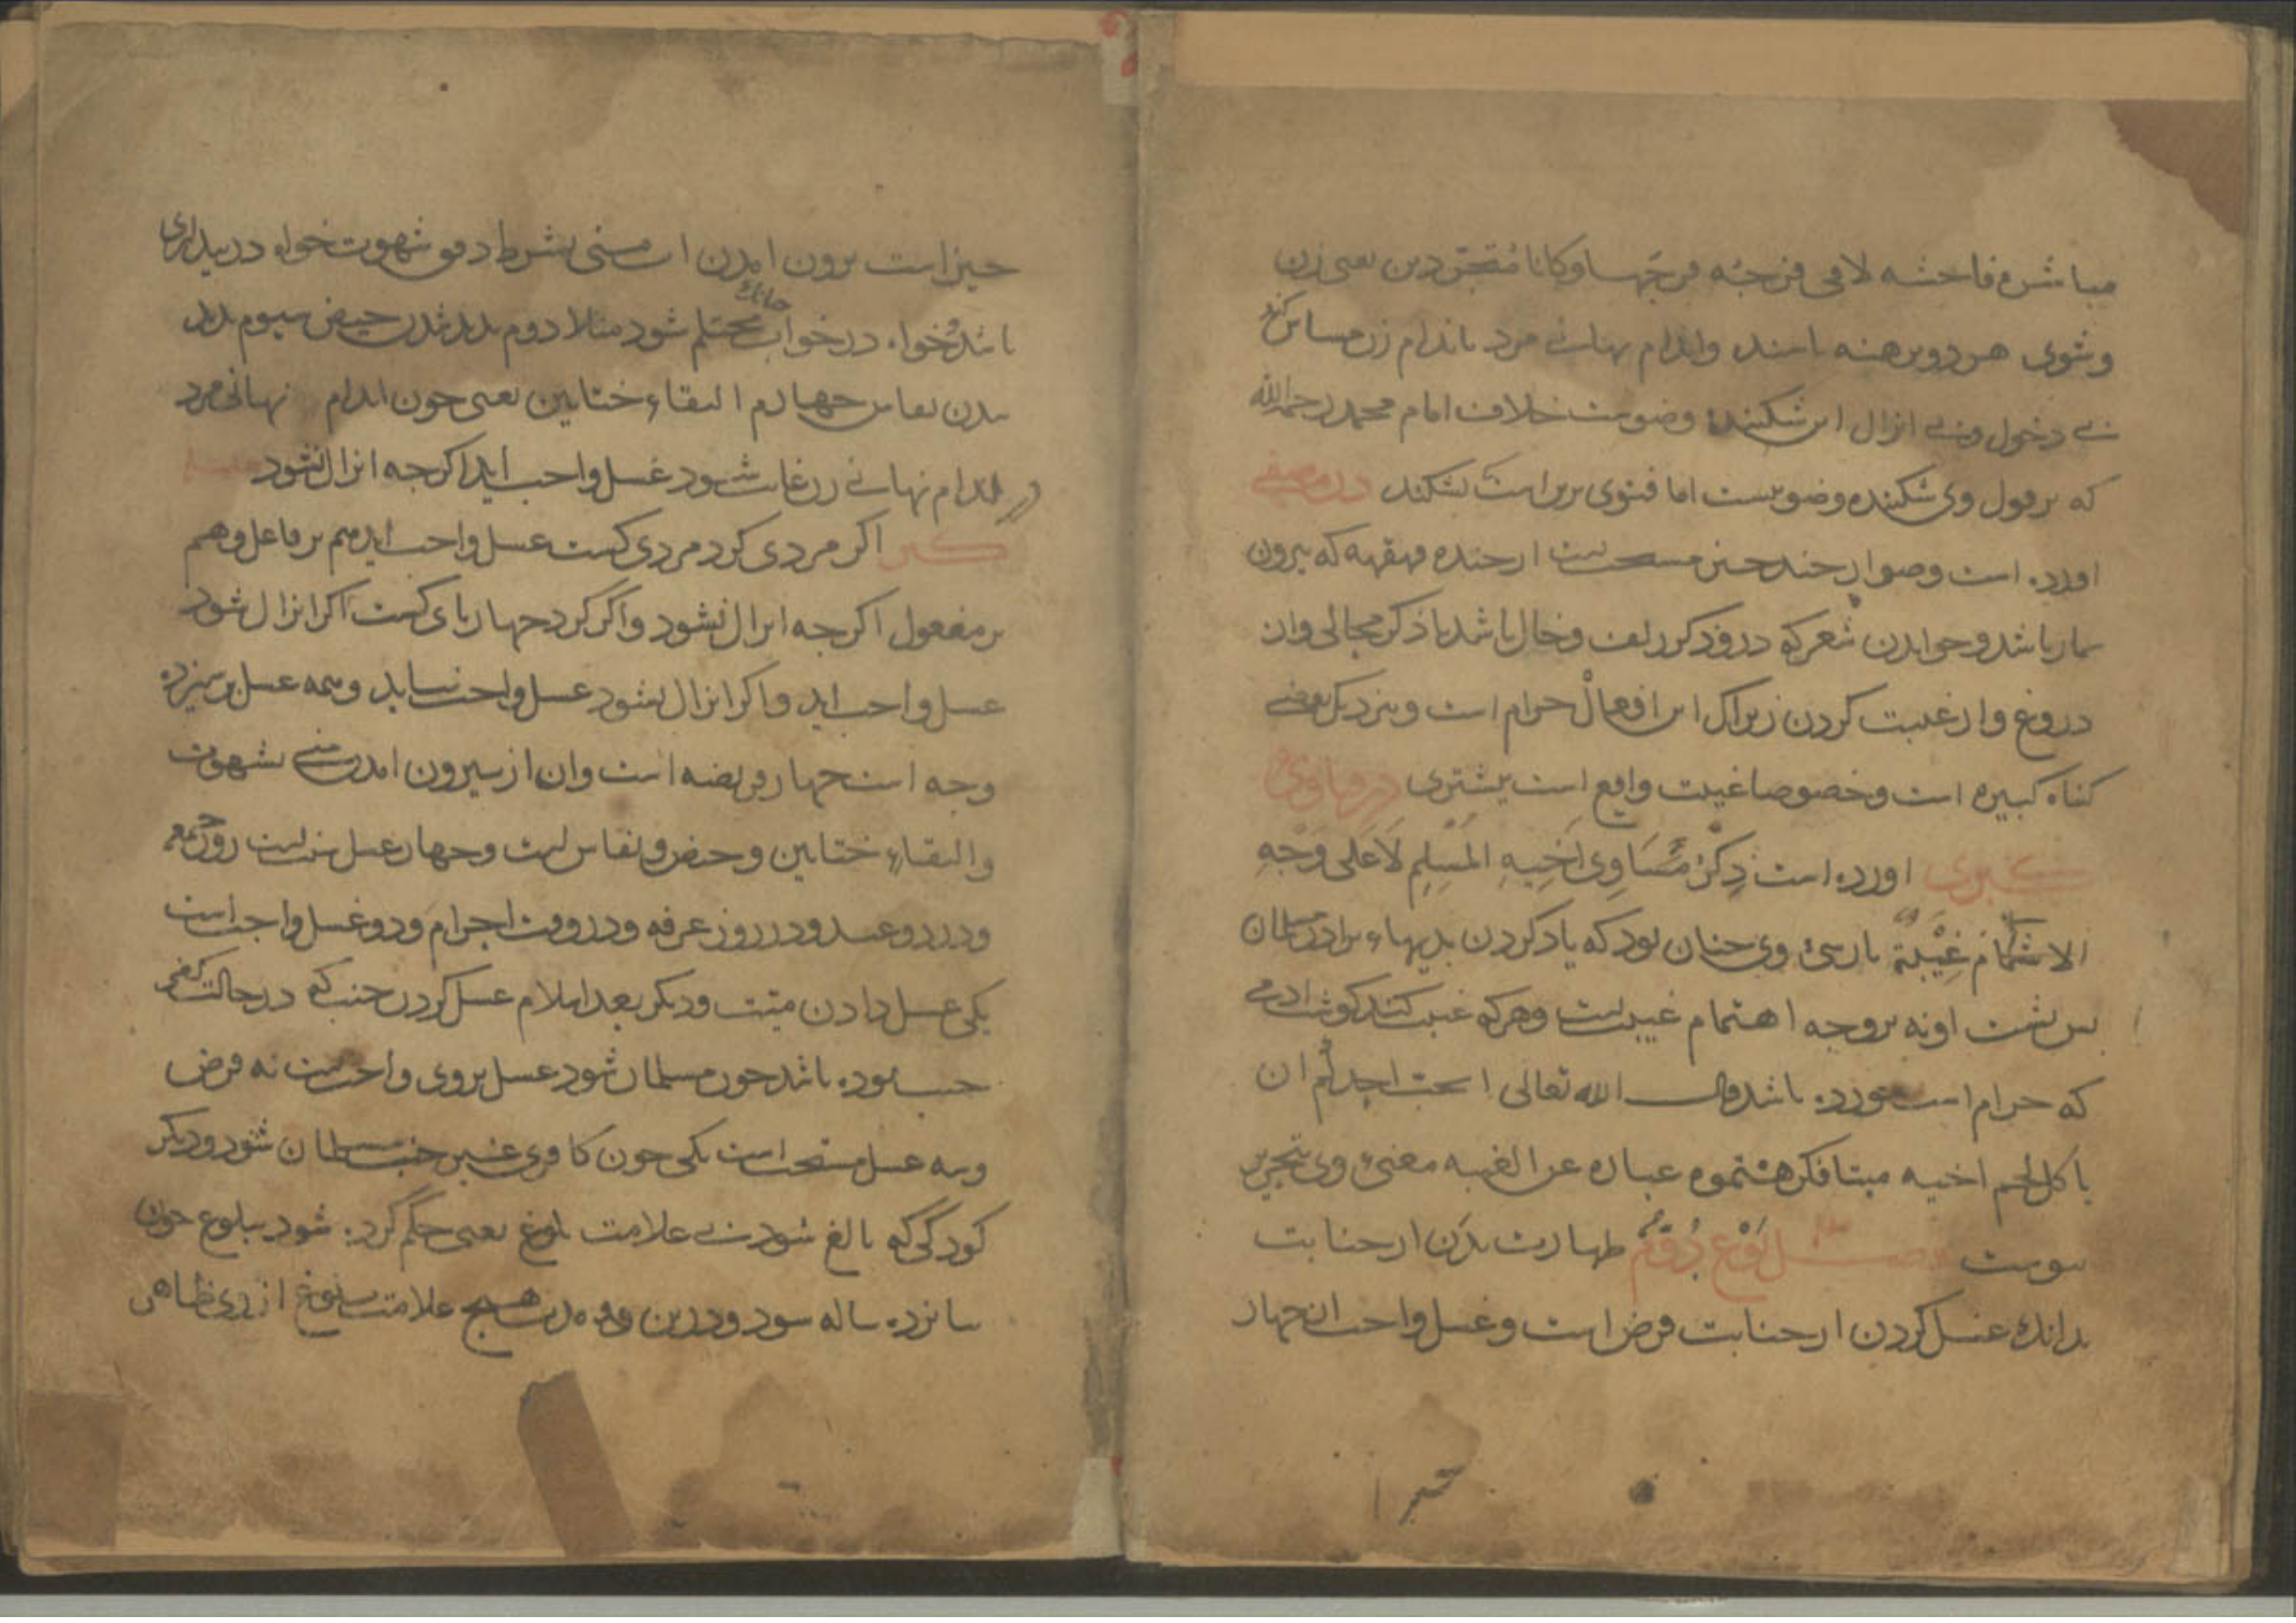 مباشره فاحشه لاقی فرجه فرجها و کانا متجردین یعنی زن
وشوی هر دو برهنه باشند واندام نهانی مرد باندام زن مساس کند
بی دخول و بی انزال این شکننده وضوست خلاف امام محمد رحمه الله
که بر قول وی شکننده وضو نیست اما فتوی برین است که نشکند در
اورده است وضو از چند چیز مستحب است از خنده قهقهه که بیرون
نماز باشد و خواندن شعر که درو ذکر زلف و خال باشد یا ذکر مجالی و از
دروغ و از غیبت کردن زیراک این افعال حرام است و بنزدیک بعضی
کناه کبیره است و خصوصا غیبت واقع است بیشتری در فتاوی
کبری اورده است ذکر مساوی اخیه المسلم لا علی وجه
الاهتمام غیبة پارسی وی چنان بود که یاد کردن بدیهاء برادر مسلمان
پس پشت او نه بر وجه اهتمام غیبت است و هر که غیبت کند کوشت ادمی
که حرام است خورده باشد قال الله تعالی ایحب احدکم ان
یاکل لحم اخیه میتا فکرهتموه عباره عن الغیبه معنی وی
پیوست فصل نوع دوم طهارت بدن از جنابت
بدانک غسل کردن از جنابت فرض است و غسل واجب از چهار
چیز است برون امدن اب منی بشرط دفق شهوت خواه در بیداری
باشد و خواه در خواب چنانک محتلم شود مثلا دوم بدید شدن حیض سیوم بدید
شدن نفاس چهارم التقاء ختانین یعنی چون اندام نهانی مرد
در اندام نهانی زن غایب شود غسل واجب اید اکرچه انزال نشود
اکر مردی کرد مردی کشت غسل واجب اید هم بر فاعل و هم
بر مفعول اکرچه انزال نشود واکر کرد چهارپای کشت اکر انزال شود
غسل واجب اید واکر انزال نشود غسل واجب نیاید وهمه غسل بر سیزده
وجه است چهار فریضه است وان از بیرون امدن منی بشهوت
والتقاء ختانین و حیض و نفاس است و چهار غسل سنت است روز جمعه
ودر دو عید و در روز عرفه و در وقت احرام و دو غسل واجب است
یکی غسل دادن میت و دیکر بعد اسلام غسل کردن جنب که در حالت کفر
جنب بوده باشد چون مسلمان شود غسل بر وی واجب است نه فرض
وسه غسل مستحب است یکی چون کافری غیر جنب مسلمان شود و دیکر
کودکی که بالغ شود بی علامت بلوغ یعنی حکم کرده شود ببلوغ چون
پانزده ساله شود و درین مدت هیچ علامت بلوغ از وی ظاهر